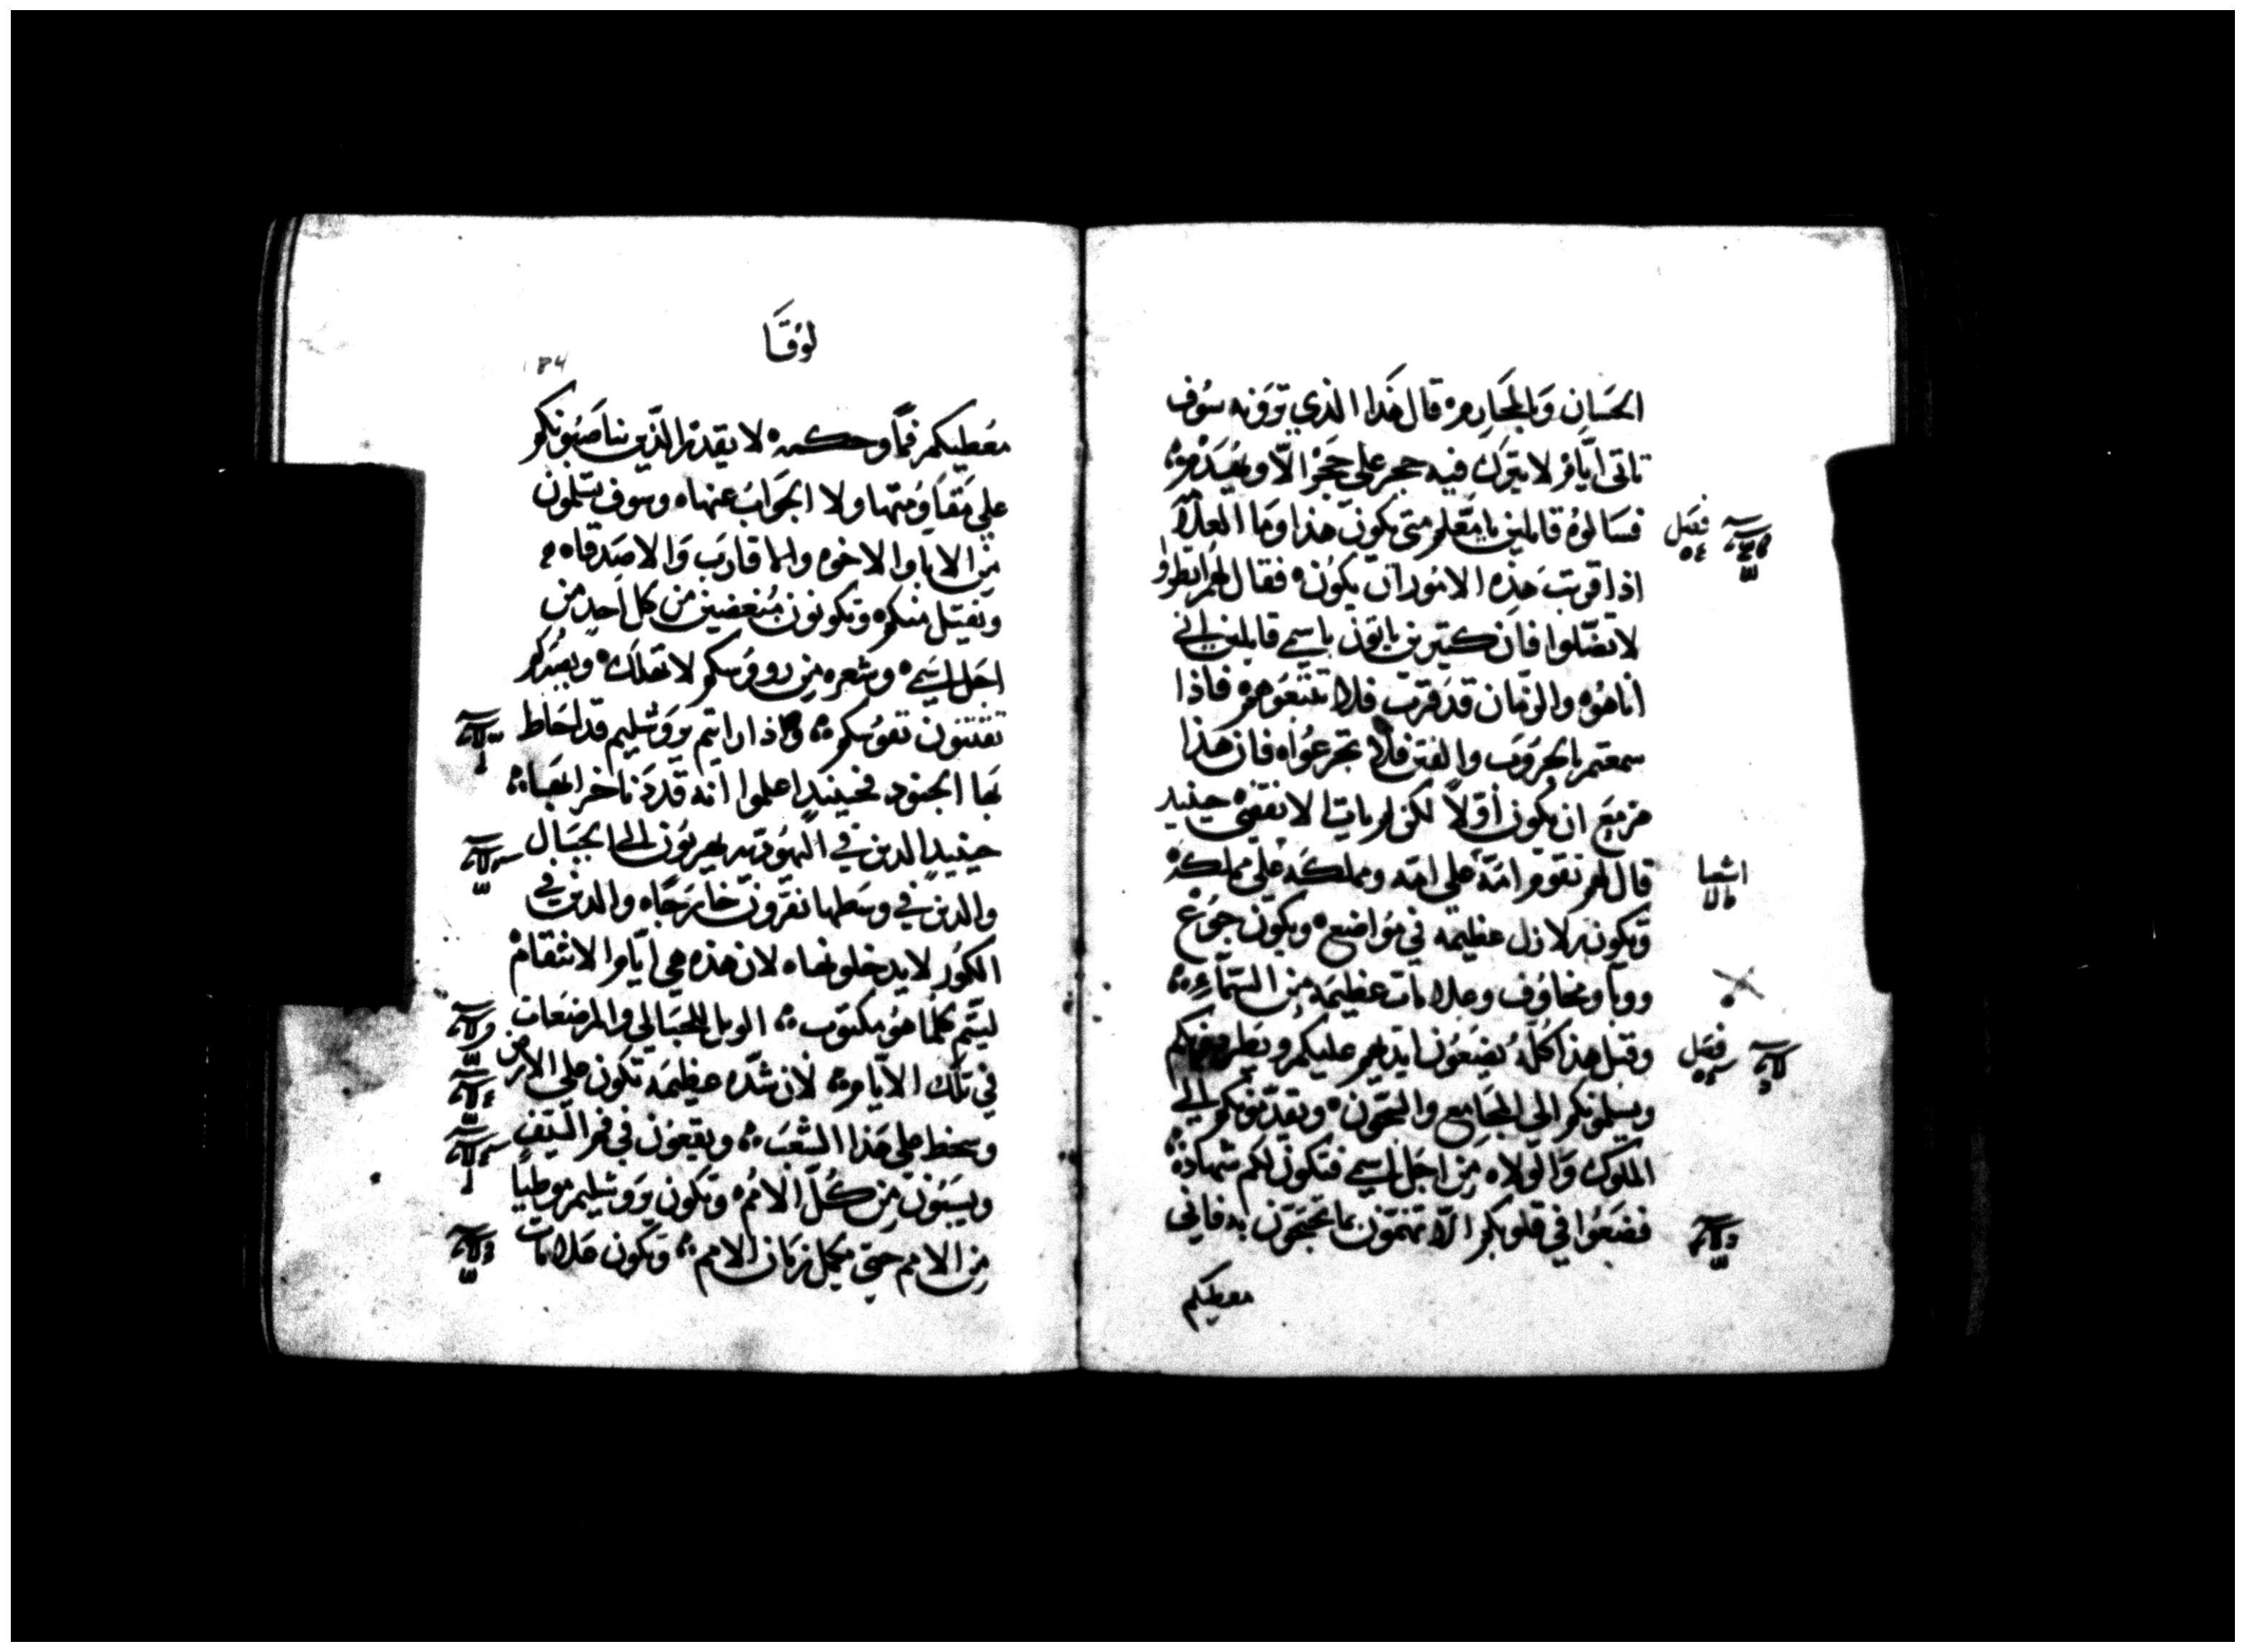 الحسان وبالمحارم قال هذا الذي ترونه سوف
تاتي ايام لا يترك فيه حجر علي حجر الا ويهدم
فسالوه قايلين يا معلم متي يكون هذا وما العلامه
اذا قربت هذه الامور ان يكون فقال لهم انظروا
لا تضلوا فان كتيرين ياتون باسمي قايلين اني
انا هو والزمان قد قرب فلا تتبعوهم فاذا
سمعتم بالحروب والفتن فلا تجزعوا فان هذا
مزمع ان يكون اولا لكن لم يات الانقضي حينيد
قال لهم تقوم امة علي امه ومملكه علي مملكه
وتكون زلازل عظيمه في مواضع ويكون جوع
ووبا ومخاوف وعلامات عظيمه من السماء
وقبل هذا كله يضعون ايديهم عليكم ويطردونكم
ويسلمونكم الي المجامع والسجون وتقدمونكم الي
الملوك والولاه من اجل اسمي فتكون لكم شهادة
فضعوا في قلوبكم الا تهتمون بما تحتجون به فاني
معطيكم
فصل
٥٤
اشعيا
فصل
لوقا
184
معطيكم فما وحكمه لا يقدر الذين يناصبونكم
علي مقاومتها ولا الجواب عنها وسوف تسلمون
من الابا والاخوه والاقارب والاصدقا
وتقتل منكم وتكونون مبغضين من كل احد من
اجل اسمي وشعره من رووسكم لا تهلك وبصبركم
تقتنون نفوسكم واذا رايتم يروشليم قد احاط
بها الجنود فحينيد اعلموا انه قد دنا خرابها
حينيد الدين في اليهوديه يهربون الي الجبال
والدين في وسطها يفرون خارجا والدين في
الكور لا يدخلونها لان هذه هي ايام الانتقام
ليتم كلما هو مكتوب الويل للحبالي والمرضعات
في تلك الايام لان شده عظيمه تكون علي الارض
وسخط علي هذا الشعب ويقعون في فم السيف
ويسبون من كل الامم وتكون يروشليم موطيا
من الامم حتي يكمل زمان الامم وتكون علامات